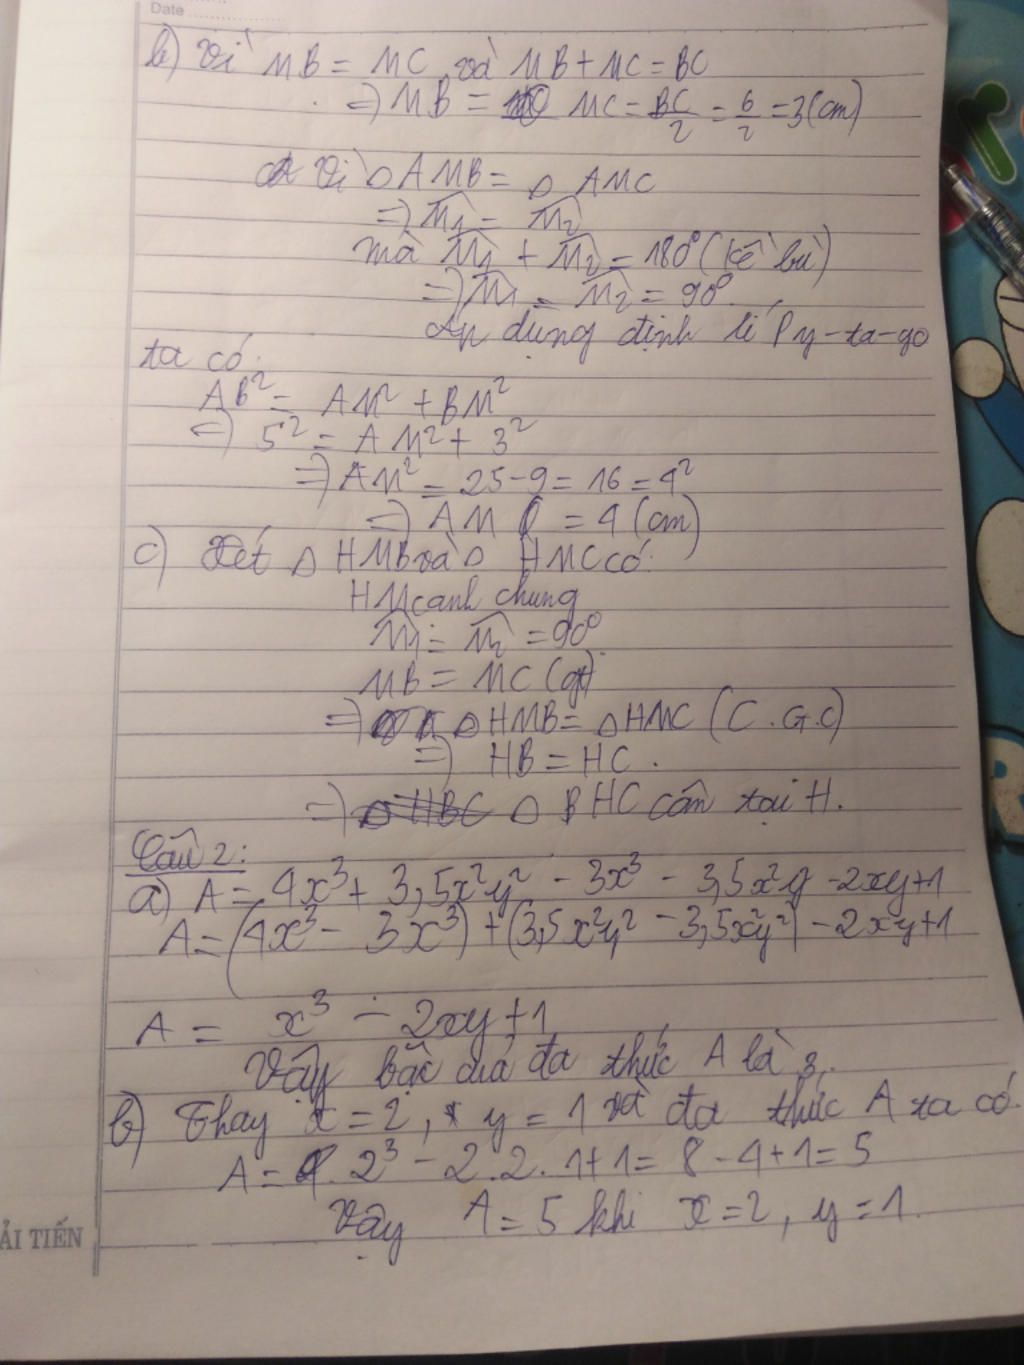 Date
b) Vì MB = MC và MB + MC = BC
=> MB = MC = BC/2 = 6/2 = 3 (cm)
Vì △AMB = △AMC
=> M̂1 = M̂2
mà M̂1 + M̂2 = 180° (kề bù)
=> M̂1 = M̂2 = 90°
Áp dụng định lí Py-ta-go
ta có
AB² = AM² + BM²
=> 5² = AM² + 3²
=> AM² = 25 - 9 = 16 = 4²
=> AM = 4 (cm)
c) Xét △ HMB và △ HMC có:
HM cạnh chung
M̂1 = M̂2 = 90°
MB = MC (gt)
=> △HMB = △HMC (C.G.C)
=> HB = HC.
=> △ HBC △ BHC cân tại H.
Câu 2:
a) A = 4x³ + 3,5x²y² - 3x³ - 3,5x²y - 2xy + 1
A = (4x³ - 3x³) + (3,5x²y² - 3,5x²y²) - 2xy + 1
A = x³ - 2xy + 1
Vậy bậc của đa thức A là 3.
b) Thay x = 2, y = 1 và đa thức A ta có.
A = 2³ - 2.2.1 + 1 = 8 - 4 + 1 = 5
Vậy A = 5 khi x = 2, y = 1.
ẢI TIẾN